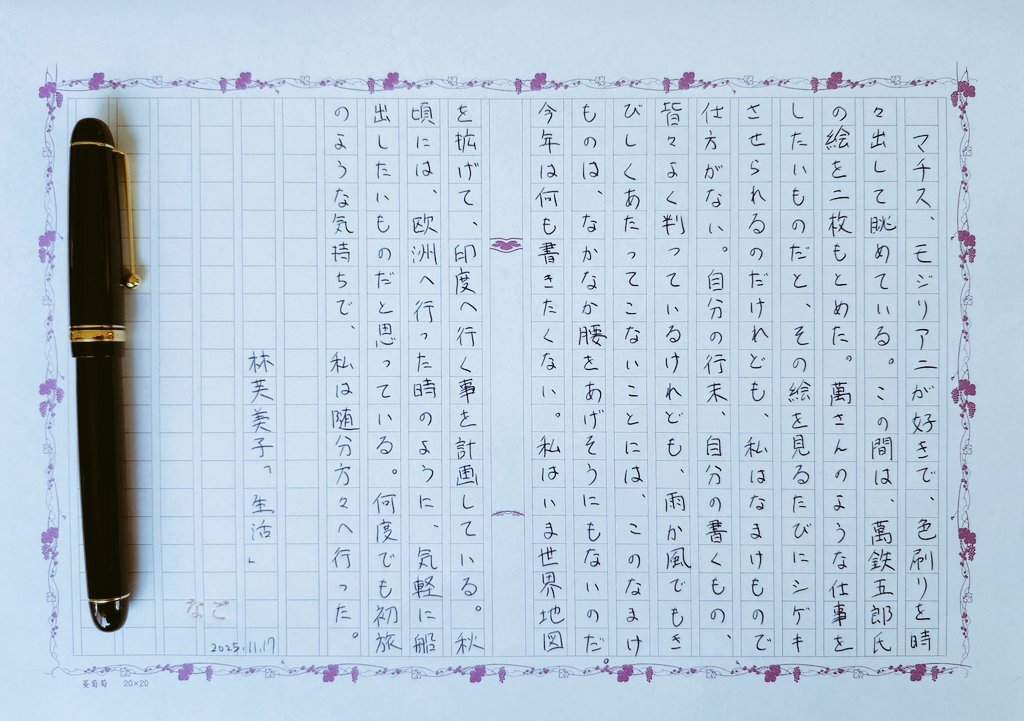 マチス、モジリアニが好きで、色刷りを時
々出して眺めている。この間は、萬鉄五郎氏
の絵を二枚もとめた。萬さんのような仕事を
したいものだと、その絵を見るたびにシゲキ
させられるのだけれども、私はなまけもので
仕方がない。自分の行末、自分の書くもの、
皆々よく判っているけれども、雨か風でもき
びしくあたってこないことには、このなまけ
ものは、なかなか腰をあげそうにもないのだ。
今年は何も書きたくない。私はいま世界地図
を拡げて、印度へ行く事を計画している。秋
頃には、欧洲へ行った時のように、気軽に船
出したいものだと思っている。何度でも初旅
のような気持ちで、私は随分方々へ行った。
林芙美子「生活」
なご
2025.11.17
葡萄 20×20